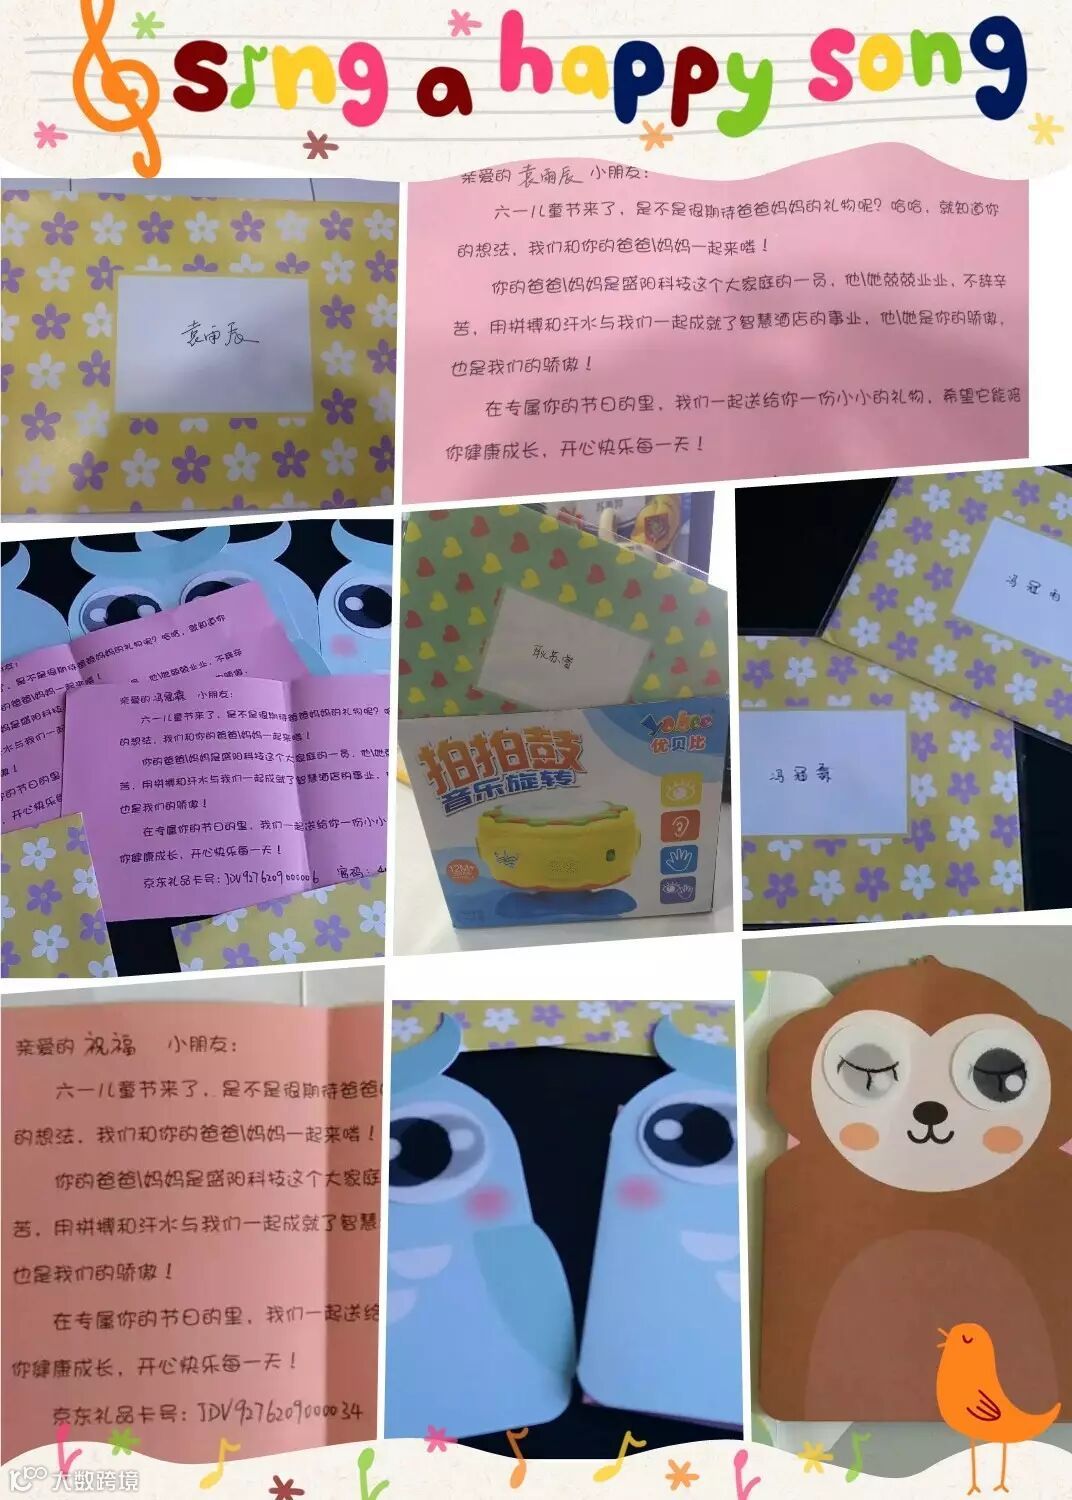 sing a happy song
袁雨辰
亲爱的 袁雨辰 小朋友：
六一儿童节来了，是不是很期待爸爸妈妈的礼物呢？哈哈，就知道你
的想法，我们和你的爸爸\妈妈一起来喽！
你的爸爸\妈妈是盛阳科技这个大家庭的一员，他\她兢兢业业，不辞辛
苦，用拼搏和汗水与我们一起成就了智慧酒店的事业，他\她是你的骄傲，
也是我们的骄傲！
在专属你的节日的里，我们一起送给你一份小小的礼物，希望它能陪
你健康成长，开心快乐每一天！
朋友：
，是不是很期待爸爸妈妈的礼物呢？哈哈，就知道你
我们和你的爸爸\妈妈一起来喽！
妈妈是盛阳科技
水与我们一起
！
节日的里，我
开心快乐每
亲爱的 冯冠霖 小朋友：
六一儿童节来了，是不是很期待爸爸妈妈的礼物呢？哈
的想法，我们和你的爸爸\妈妈一起来喽！
你的爸爸\妈妈是盛阳科技这个大家庭的一员，他\她
苦，用拼搏和汗水与我们一起成就了智慧酒店的事业，
也是我们的骄傲！
在专属你的节日的里，我们一起送给你一份小小
你健康成长，开心快乐每一天！
京东礼品卡号：JDV9276209000006 密码：
yobee
优贝比
拍拍鼓
音乐旋转
12M+
冯冠雨
冯冠霖
亲爱的 祝福 小朋友：
六一儿童节来了，是不是很期待爸爸
的想法，我们和你的爸爸\妈妈一起来喽！
你的爸爸\妈妈是盛阳科技这个大家庭
苦，用拼搏和汗水与我们一起成就了智慧
也是我们的骄傲！
在专属你的节日的里，我们一起送给
你健康成长，开心快乐每一天！
京东礼品卡号：JDV9276209000034
大数跨境